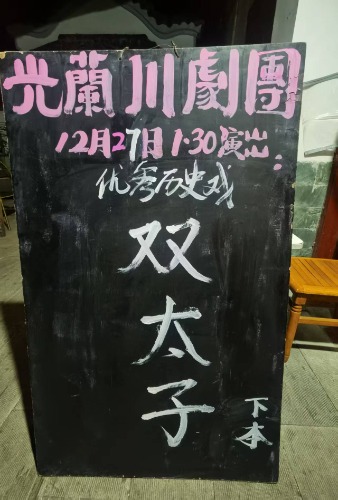 兰蘭川劇團
12月27日1·30演出:
优秀历史戏
双太子
下本